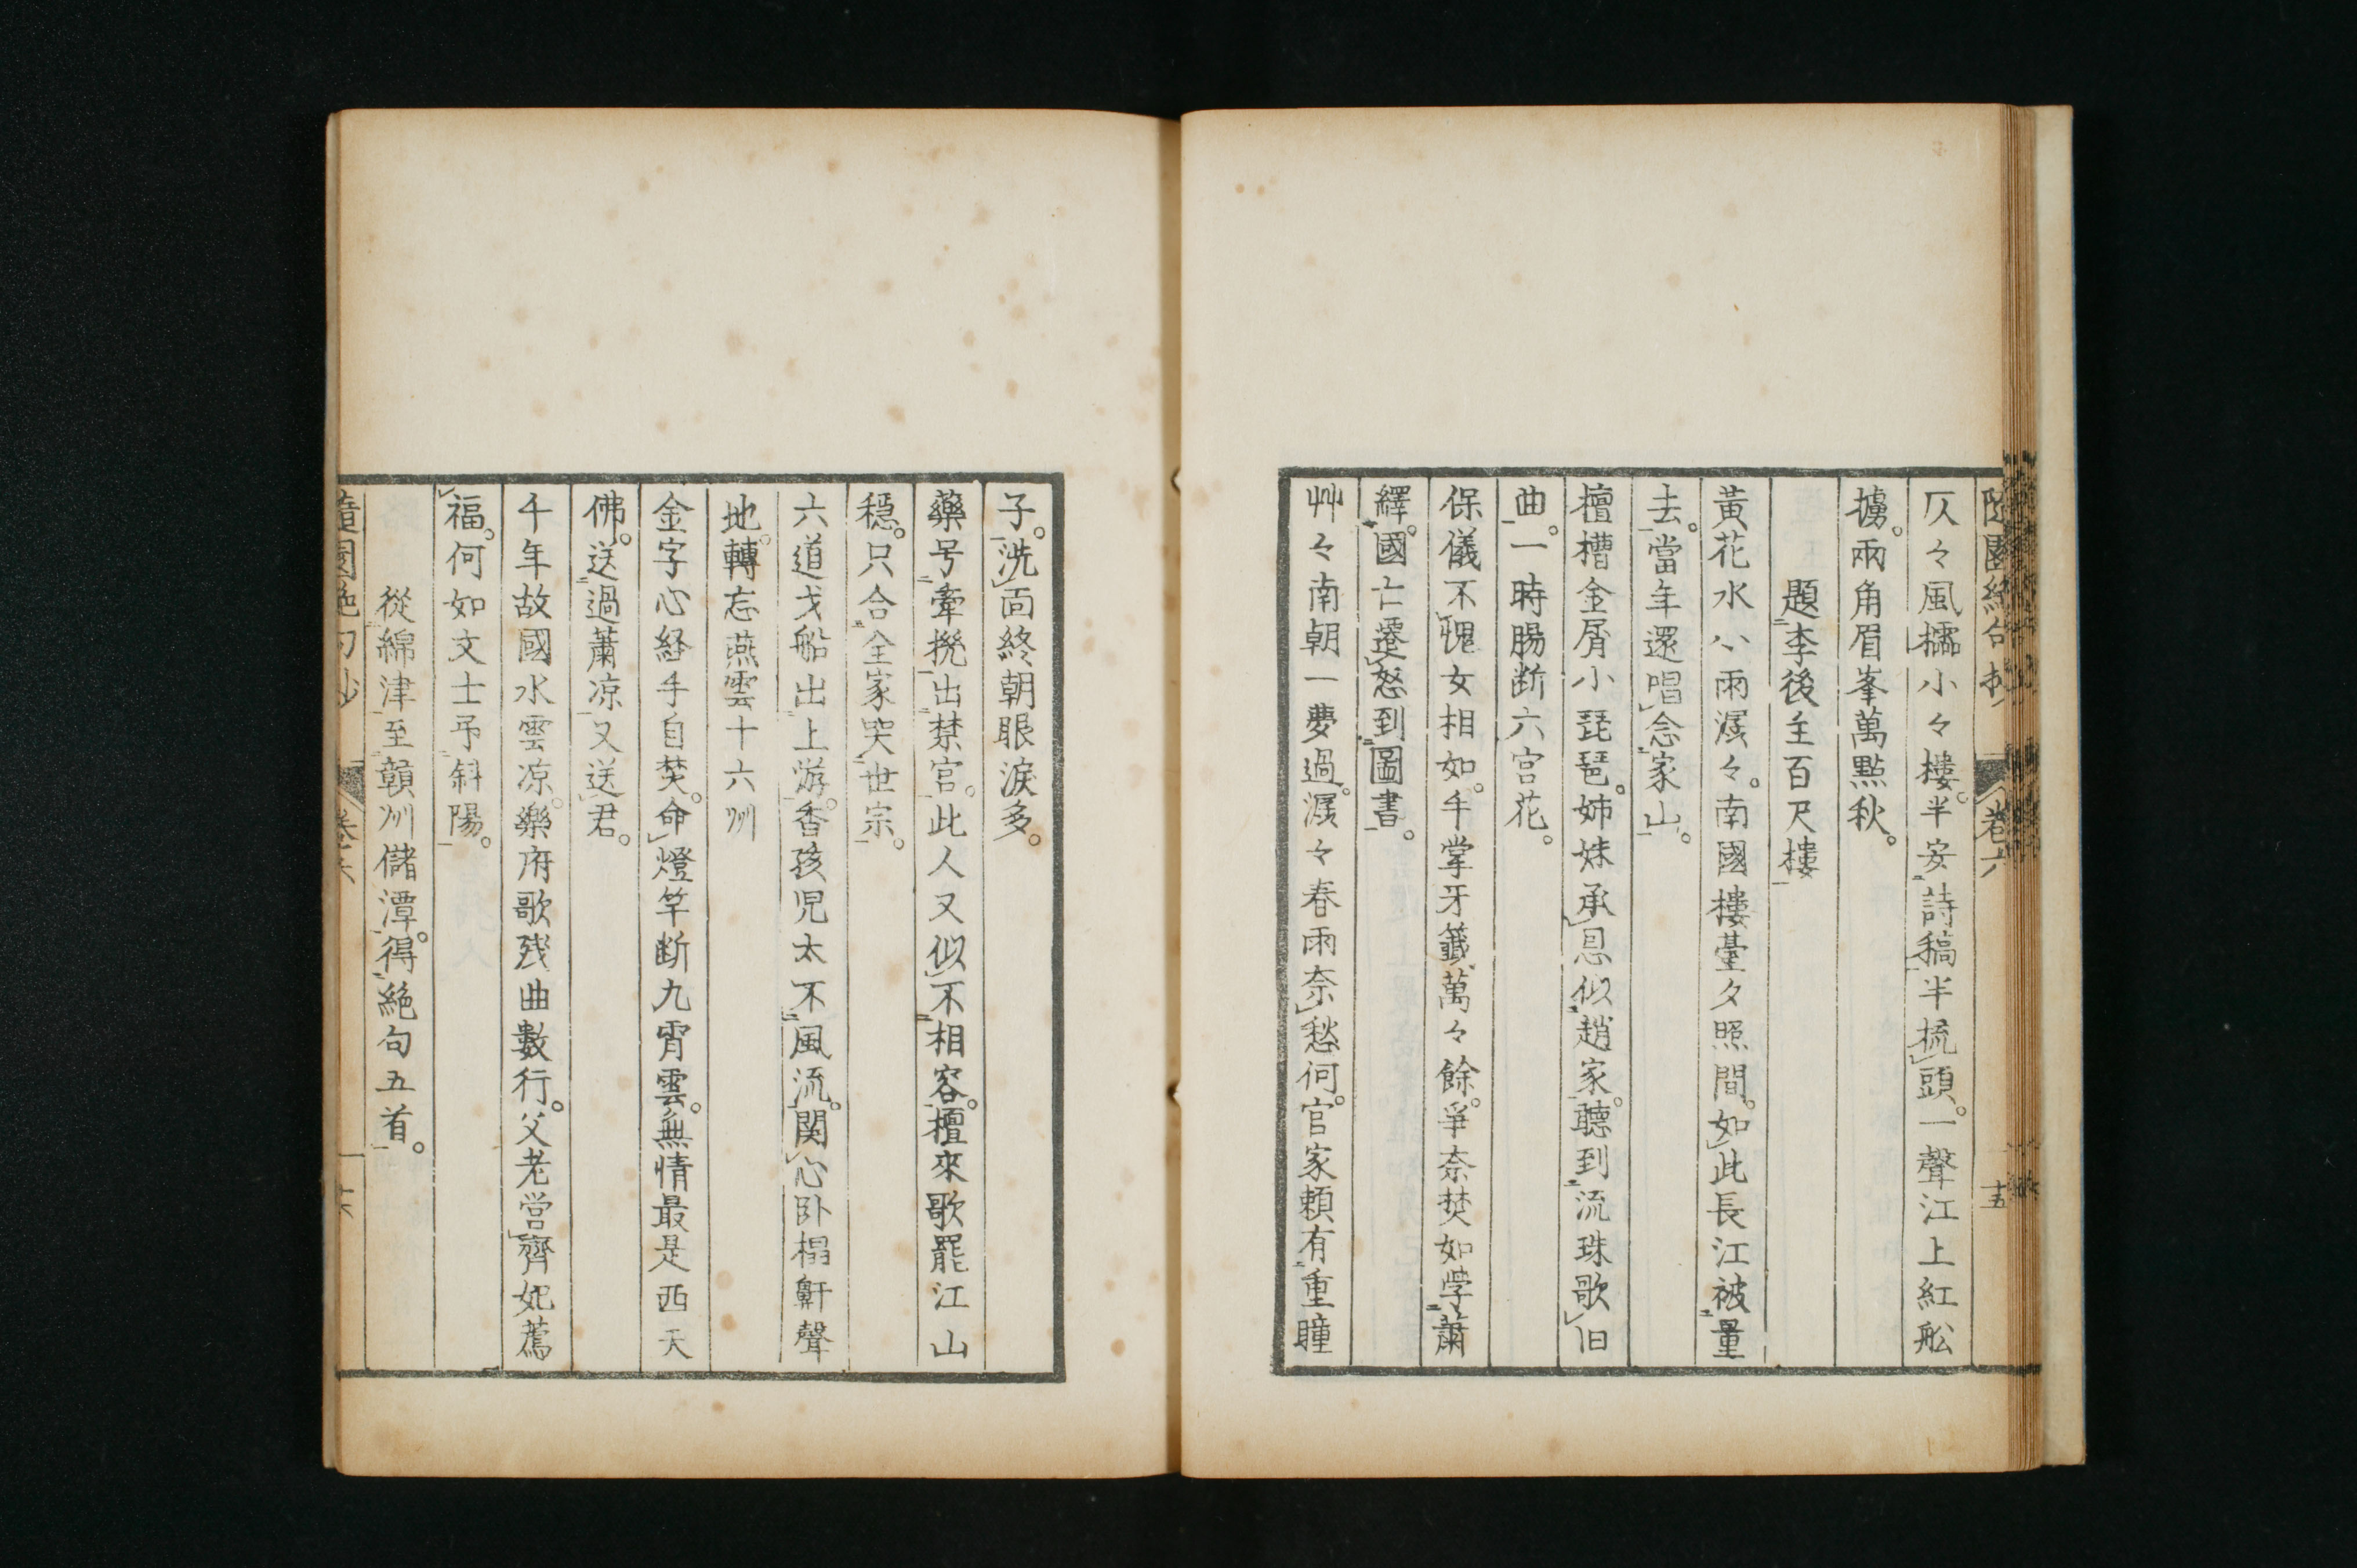 隨園絶句抄 卷六 十五
仄々風櫺小々樓。半安詩稿半梳頭。一聲江上紅舩
擄。兩角眉峯萬點秋。
題李後主百尺樓
黃花水八雨潺々。南國樓臺夕照間。如此長江被量
去。當年還唱念家山。
檀槽金屑小琵琶。姉妹承恩似趙家。聽到流珠歌旧
曲。一時腸断六宮花。
保儀不愧女相如。手掌牙籤萬々餘。爭奈焚如学蕭
繹。國亡遷怒到圖書。
艸々南朝一夢過。潺々春雨奈愁何。官家頼有重瞳
子。洗面終朝眼淚多。
藥号牽挽出禁宮。此人又似不相容。檀來歌罷江山
穏。只合全家哭世宗。
六道戈船出上游。香孩児太不風流。関心卧榻鼾聲
地。轉忘燕雲十六州
金字心経手自焚。命燈竿断九霄雲。無情最是西天
佛。送過蕭凉又送君。
千年故國水雲凉。樂府歌残曲數行。父老営齊妃薦
福。何如文士弔斜陽。
從綿津至贛州儲潭。得絶句五首。
隨園絶句抄 卷六 十六